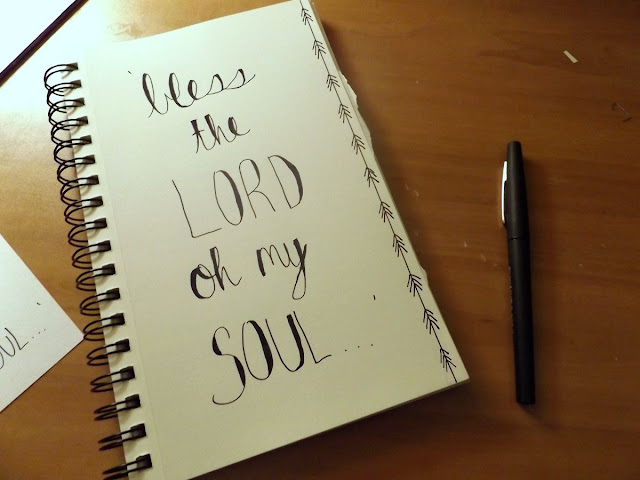 'bless
the
LORD
oh my
SOUL...'
OUL...'